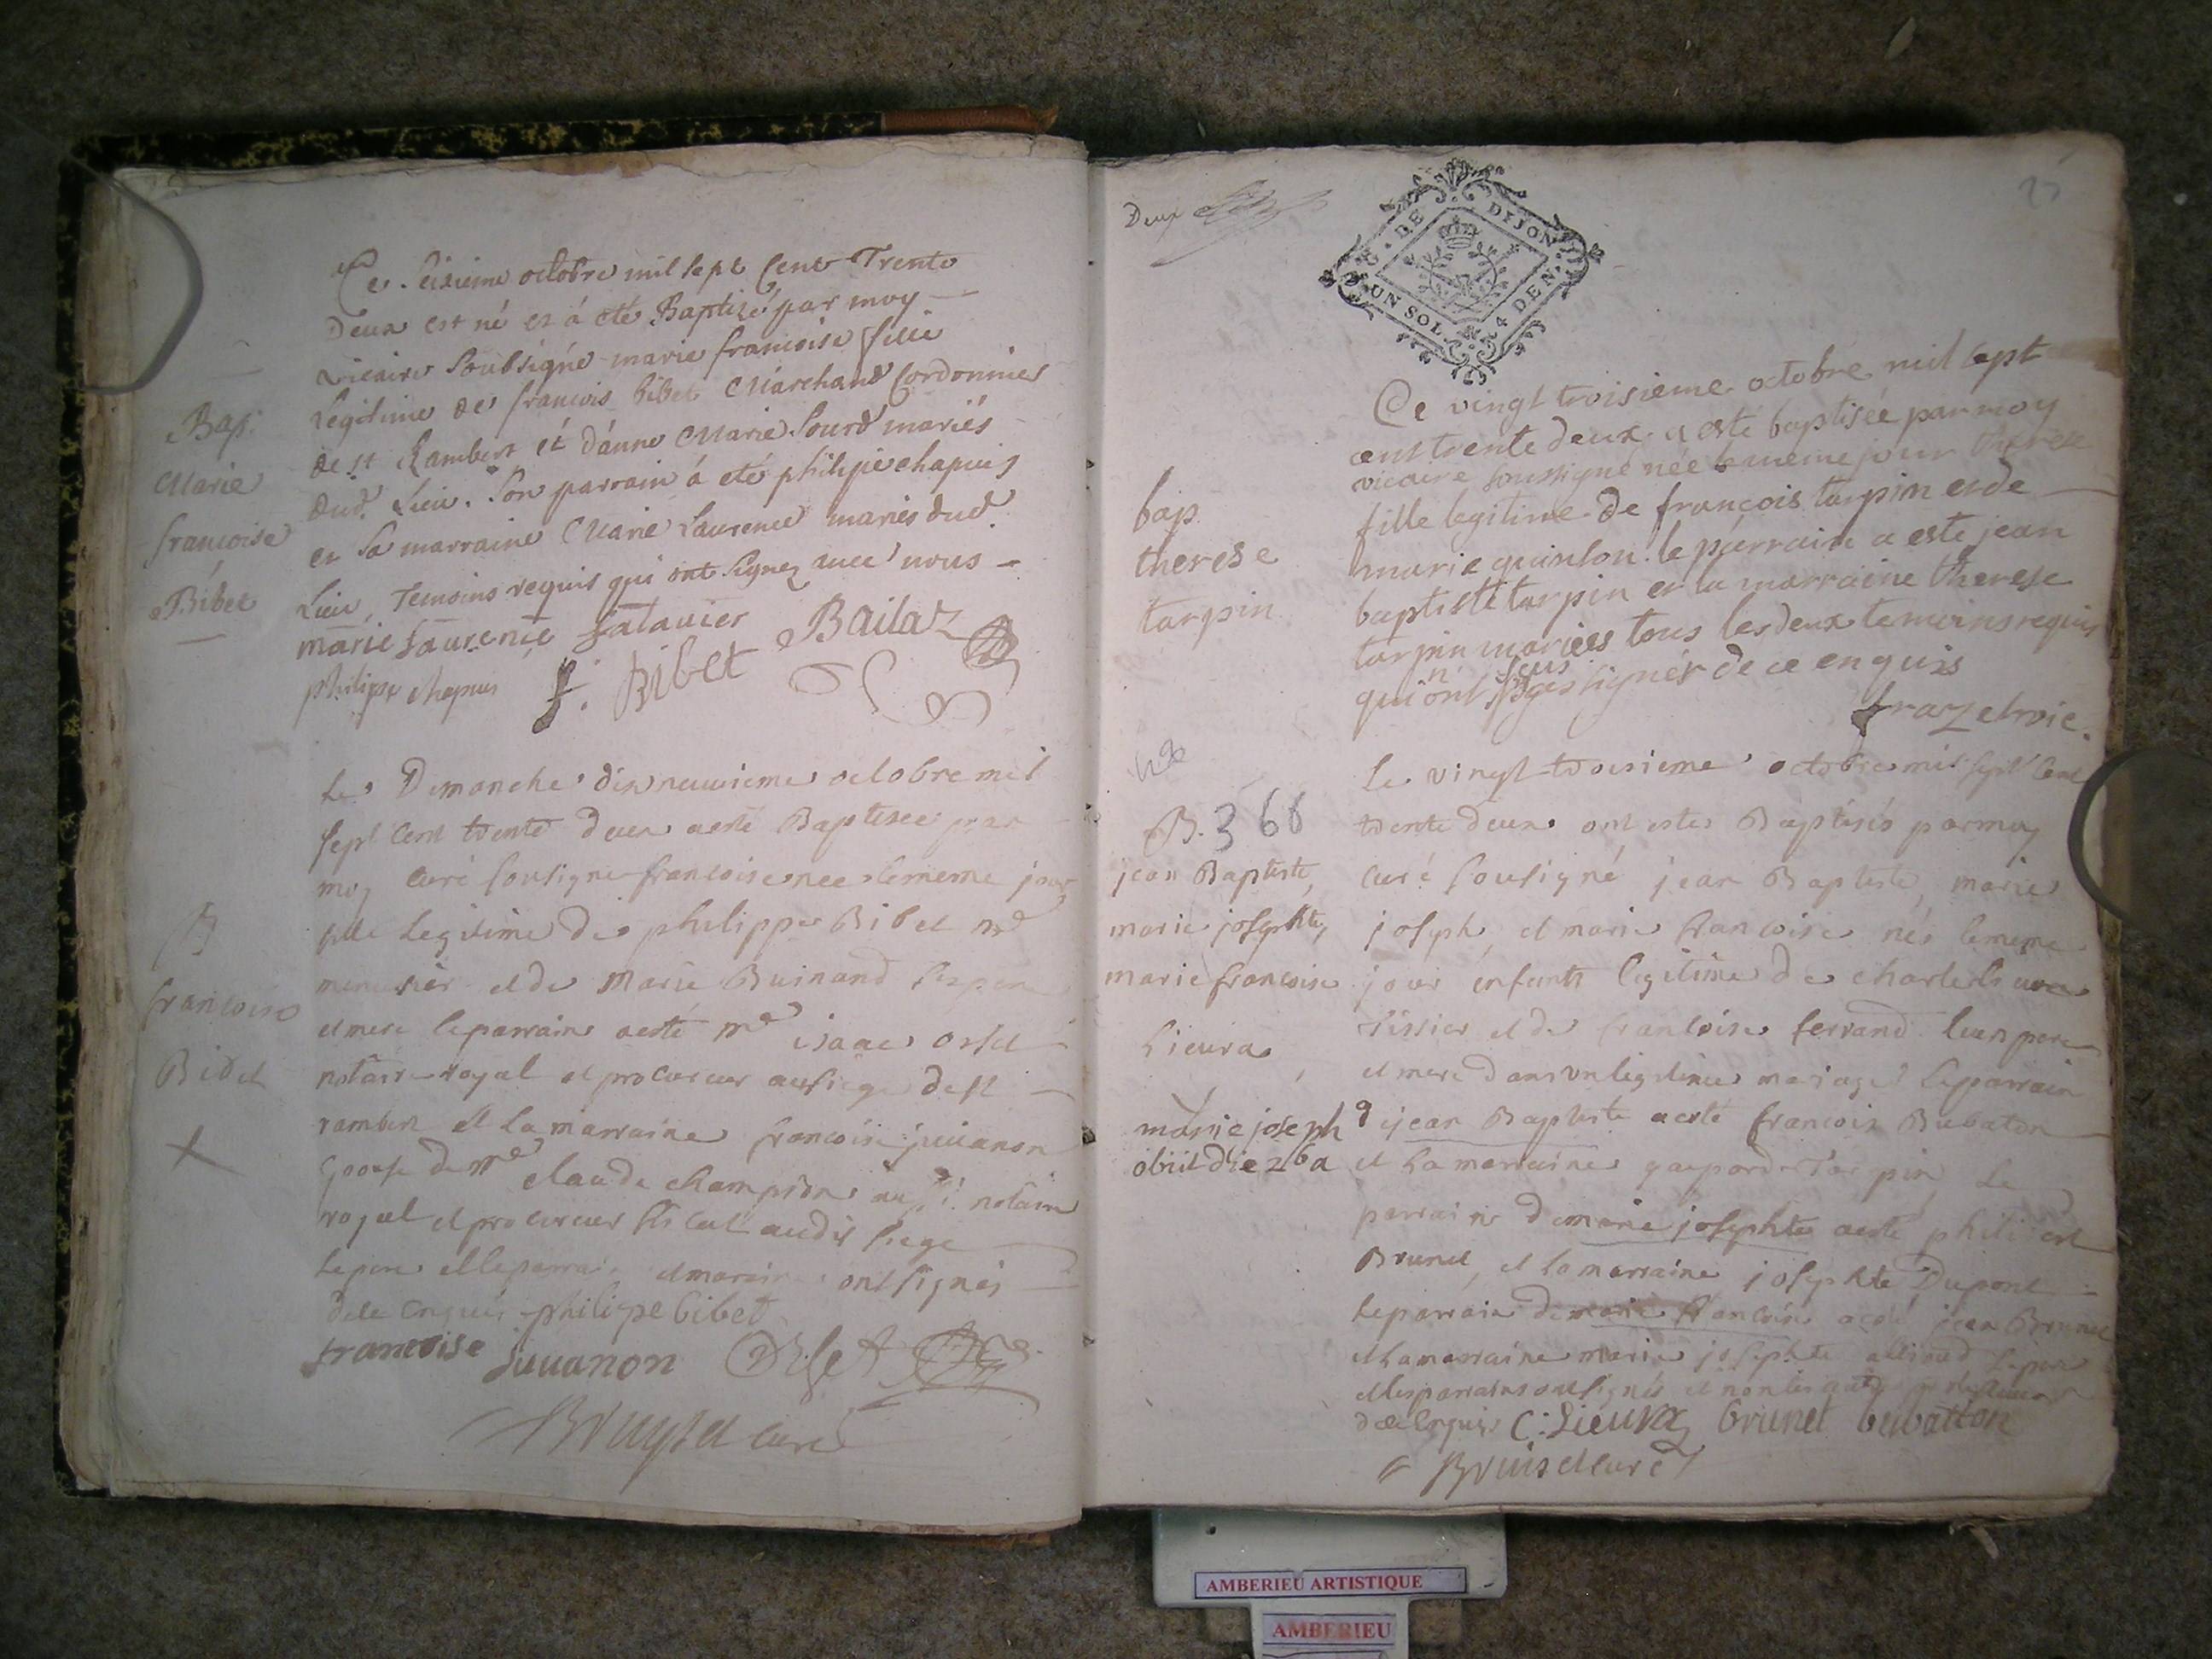 Ce Seixieme octobre mil sept Cent Trente
Deux est né et á eté Baptizé par moy
vicaire Soubsigné marie francoise fille
Legitime de francois bibet Marchand Cordonnier
de st Rambert et d'anne Marie Sourd mariés
dud. Lieu. Son parrain á eté philipe chapuis
et Sa marraine Marie Laurence mariés dud.
Lieu, Temoins requis qui ont Signez avec nous
marie Laurence Bailat
philipe chapuis f. Bibet
Bap.
Marie
francoise
Bibet
Le Dimanche dix neuvieme octobre mil
sept cent trente deux a esté Baptisee par
moy curé sousigne francoise nee le meme jour
fille Legitime de philippe Bibet md
menusier et de Marie Buinand ses pere
et mere le parrain a esté me isaac orset
notaire royal et procureur au siege de st
rambert et la marraine francoise juuanon
epouse de me claude champion aussi notaire
royal et procureur fiscal audit siege
le pere et le parrain et maraine ont signés
de ce enquis philipe bibet
francoise juuanon Orset
Bruyset curé
B
francoise
Bibet
Deux
DE DIJON
UN SOL 4 DEN.
Ce vingt troisieme octobre mil sept
cent trente deux a esté baptisée par moy
vicaire soussigné née le meme jour therese
fille legitime de françois tarpin et de
marie quinson. le parrain a este jean
baptiste tarpin et la marraine therese
tarpin mariees tous les deux temoins requis
qui n'ont sous signér de ce enquis
bap
therese
tarpin
Le vingt troisieme octobre mil sept cent
trente deux ont estes Baptisés par moy
curé sousigné jean Baptiste, marie
joseph, et marie francoise nés le meme
jour enfants legitime de charle lieura
tissier et de francoise ferrand leur pere
et mere dans un legitime mariage le parrain
de jean Baptiste a esté francois Bubaton
et la marraine gasparde Tarpin le
parrain de marie josephte a esté philibert
Brunet, et la marraine josephte Dupont
le parrain de marie francoise a esté jean Brunet
et la marraine marie josephte allioud le pere
et les parrains ont signés et non les
de ce enquis C. Lieura brunet bubatton
Bruiset curé
B. 366
jean Baptiste,
marie josephte,
marie francoise
Lieura
marie joseph
obiit die 26a
AMBERIEU ARTISTIQUE
AMBERIEU